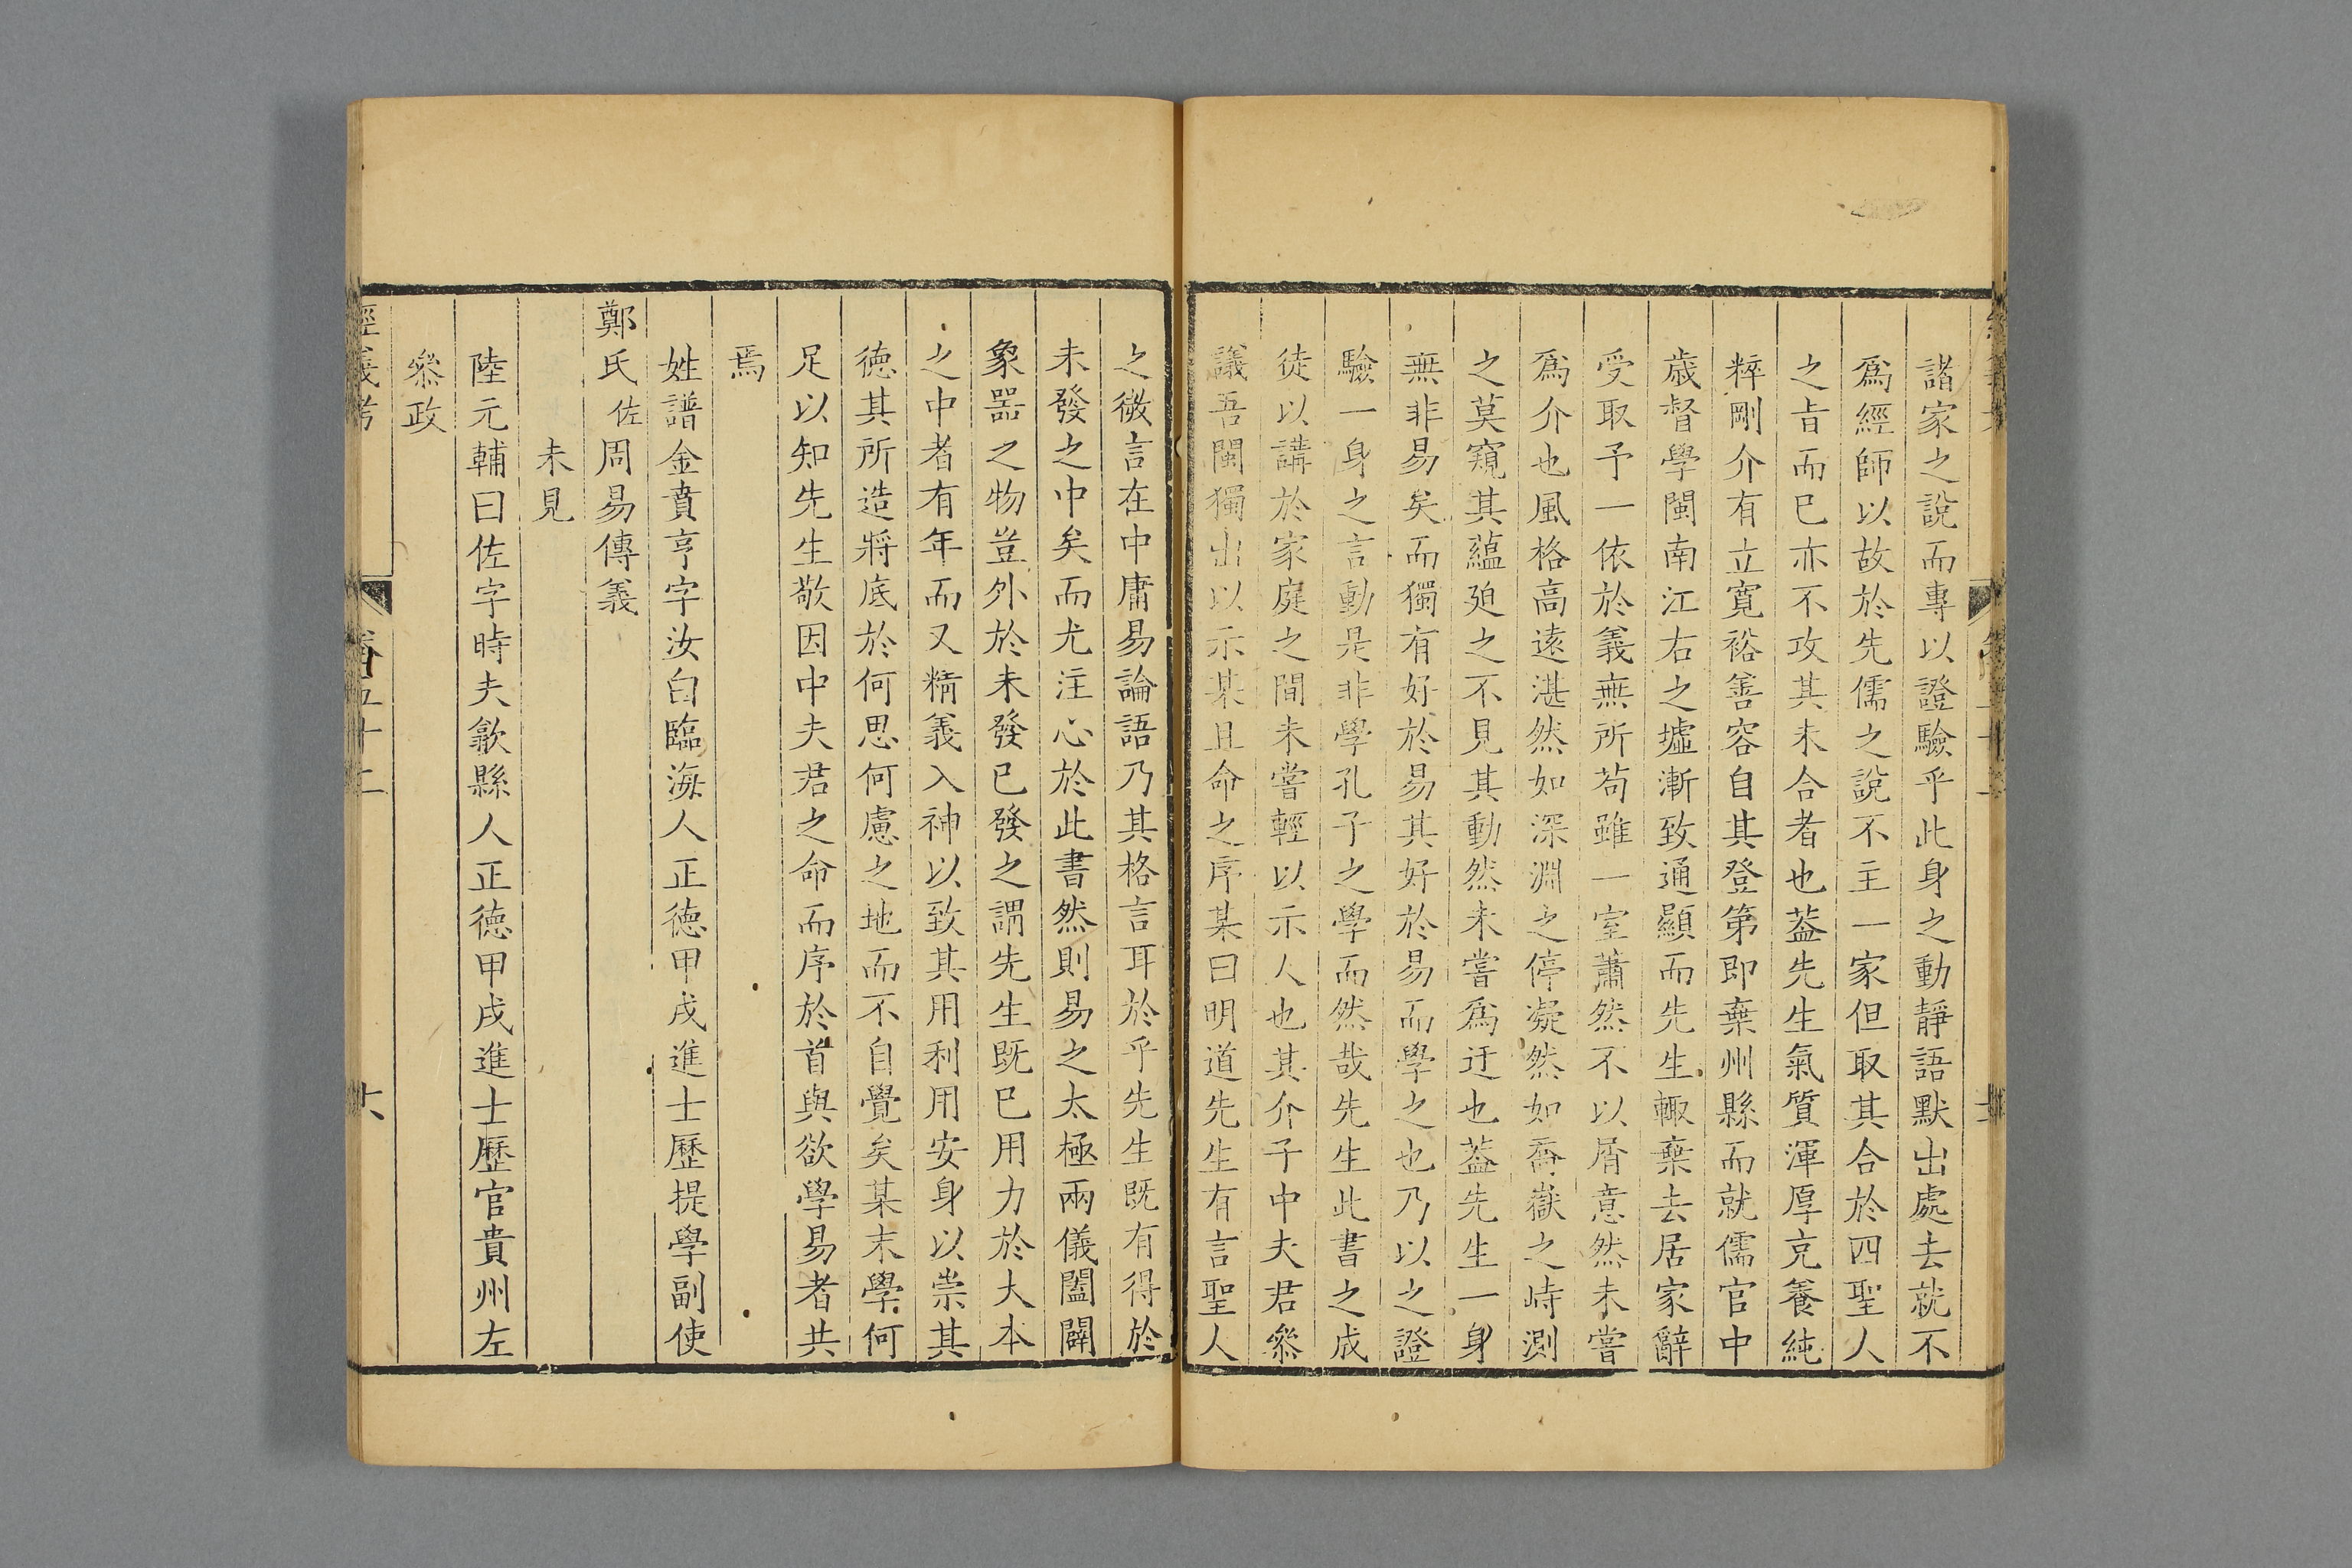 諸家之說而專以證驗乎此身之動靜語默出處去就不
爲經師以故於先儒之說不主一家但取其合於四聖人
之旨而已亦不攻其未合者也葢先生氣質渾厚克養純
粹剛介有立寬裕善容自其登第即棄州縣而就儒官中
歲督學閩南江右之墟漸致通顯而先生輙棄去居家辭
受取予一依於義無所苟雖一室蕭然不以屑意然未嘗
爲介也風格高遠湛然如深淵之停凝然如喬嶽之峙測
之莫窺其蘊廹之不見其動然未嘗爲迂也葢先生一身
無非易矣而獨有好於易其好於易而學之也乃以之證
驗一身之言動是非學孔子之學而然哉先生此書之成
徒以講於家庭之間未嘗輕以示人也其介子中夫君叅
議吾閩獨出以示某且命之序某曰明道先生有言聖人
之微言在中庸易論語乃其格言耳於乎先生既有得於
未發之中矣而尤注心於此書然則易之太極兩儀闔闢
象噐之物豈外於未發已發之謂先生既已用力於大本
之中者有年而又精義入神以致其用利用安身以崇其
德其所造將底於何思何慮之地而不自覺矣某末學何
足以知先生敬因中夫君之命而序於首與欲學易者共
焉
姓譜金賁亨字汝白臨海人正德甲戌進士歷提學副使
鄭氏佐周易傳義
未見
陸元輔曰佐字時夫歙縣人正德甲戌進士歷官貴州左
叅政
經義考 卷五十二 六